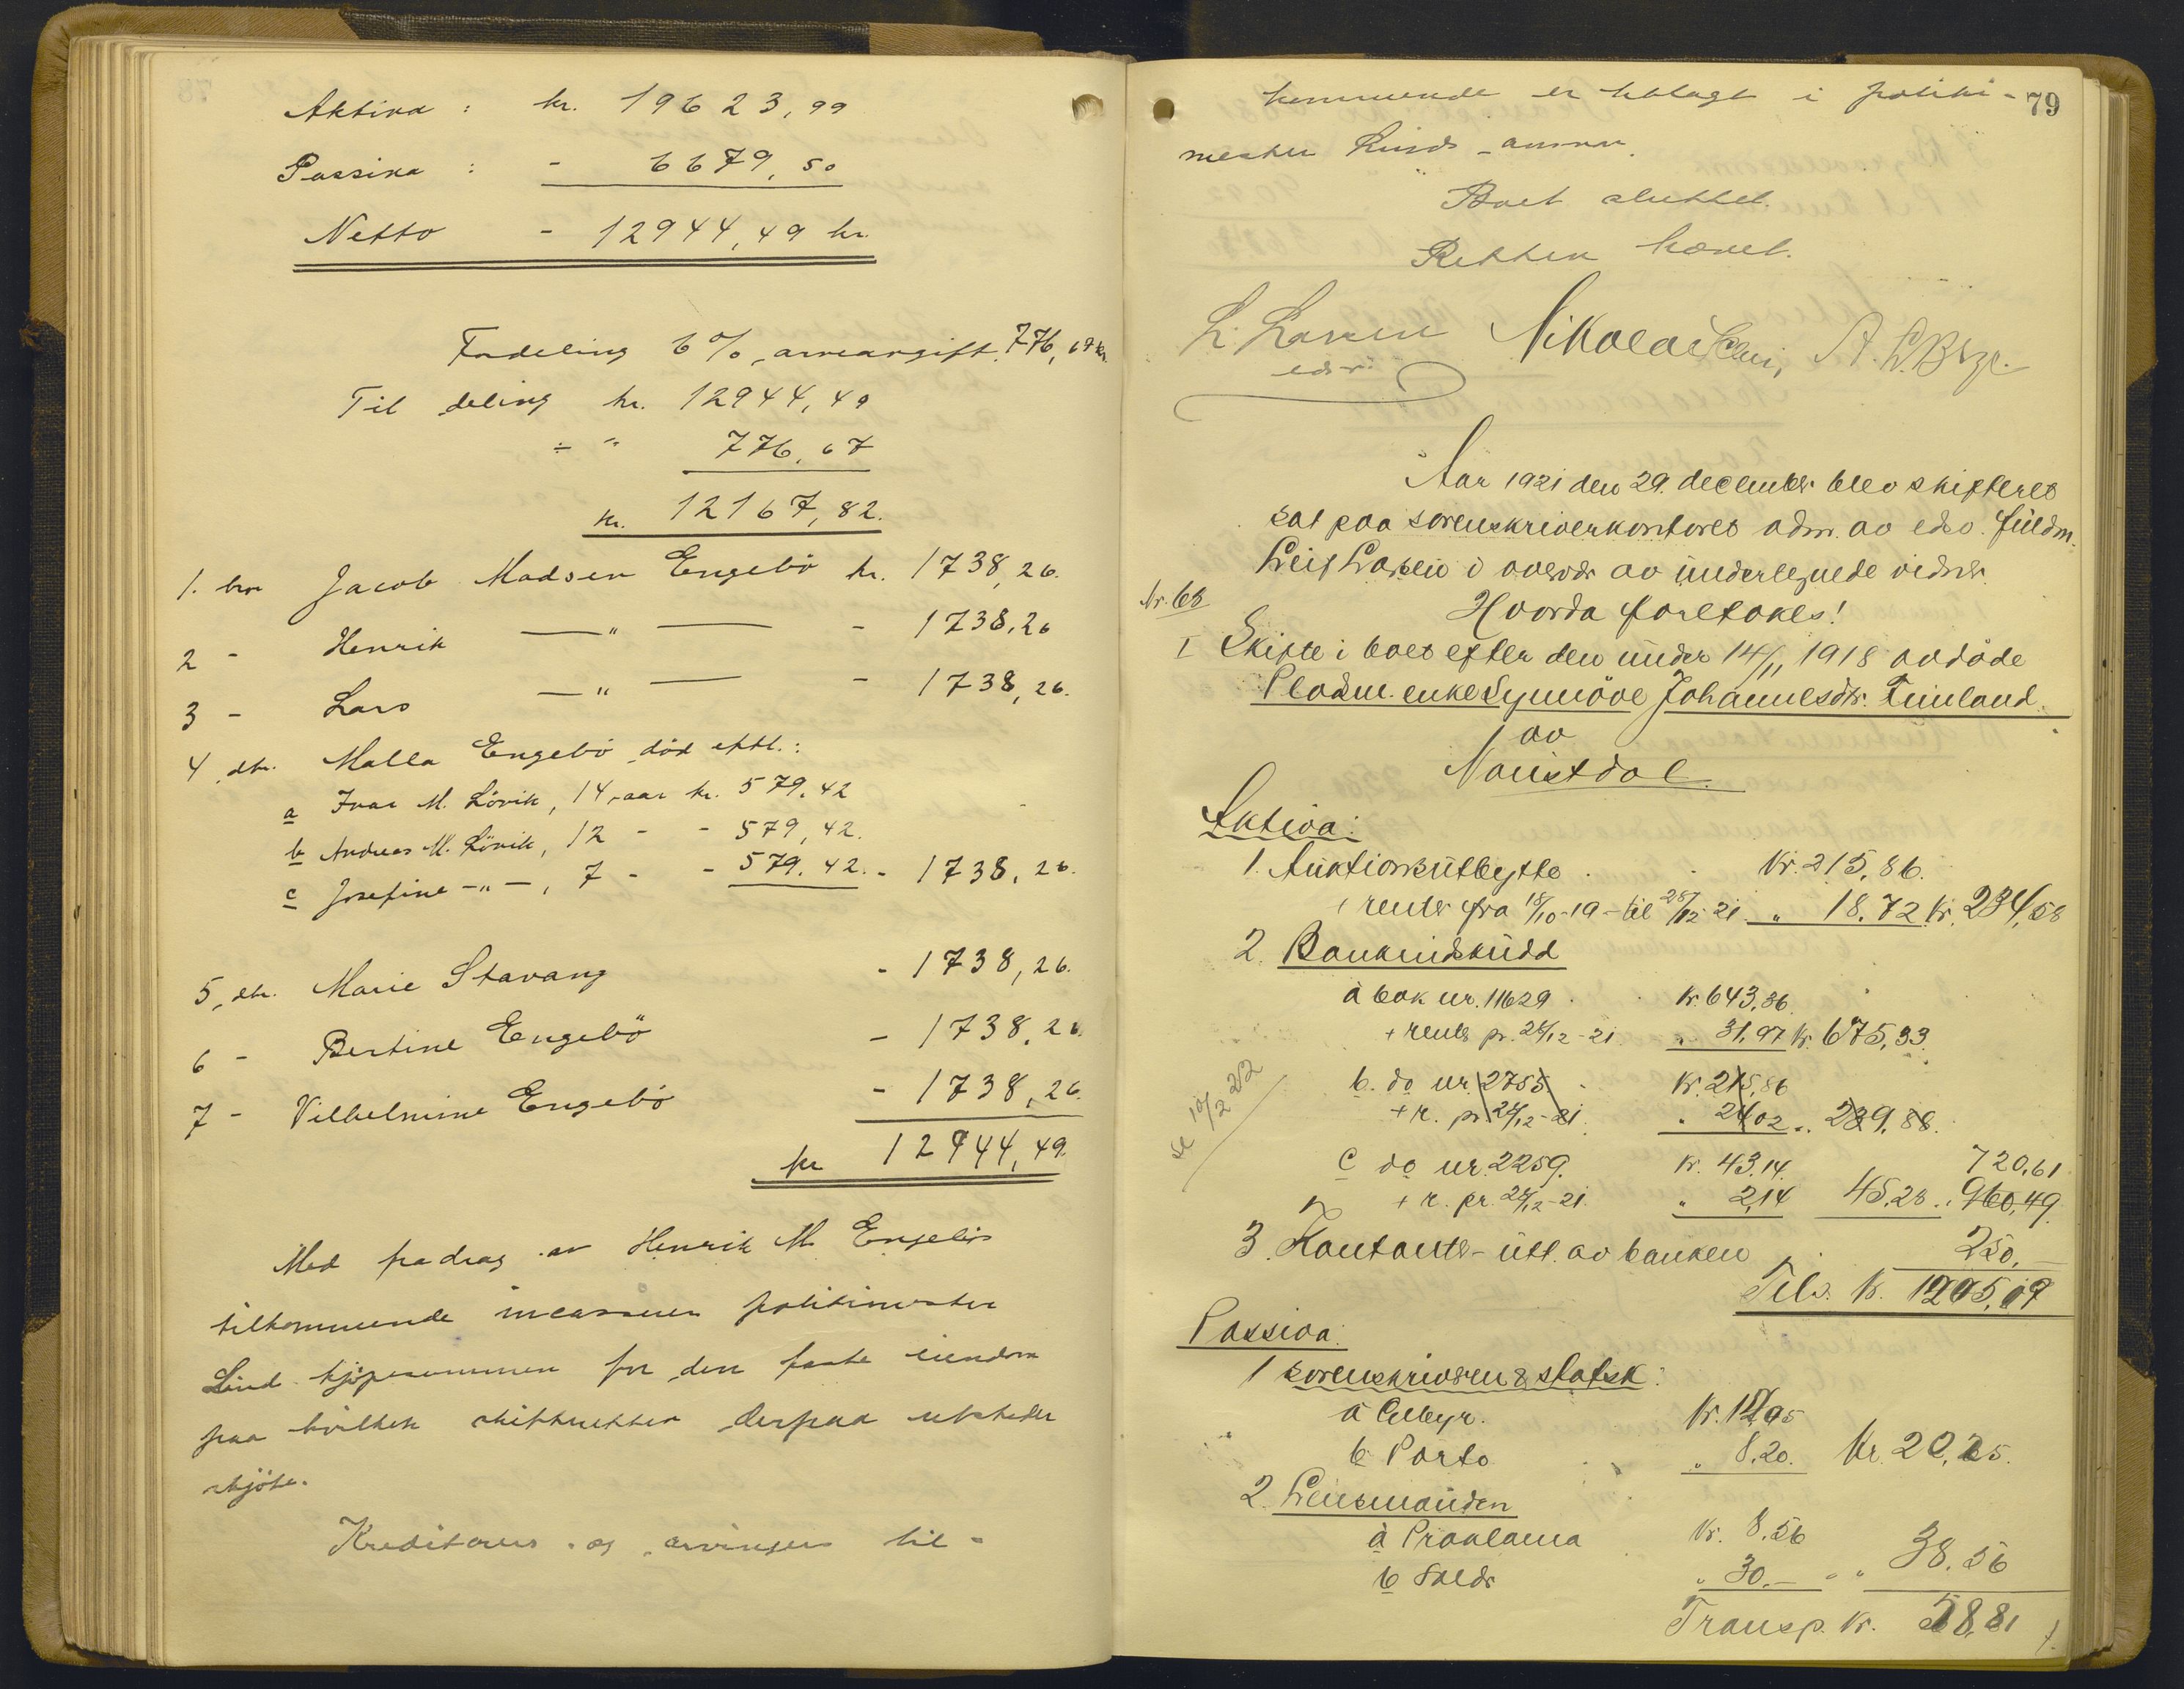 Aktiva : kr. 19623,99
Passiva : - 6679,50
Netto - 12944,49 kr.
Fordeling 6% arveavgift. 776,67 kr.
Til deling kr. 12944,49
÷ " 776,67
kr. 12167,82.
1. bror Jacob Madsen Engebö kr. 1738,26.
2 - Henrik —"— - 1738,26
3 - Lars —"— - 1738,26.
4. dtr. Malla Engebö död eftl.:
a Ivar M. Lövik, 14 aar kr. 579,42
b Andreas M. Lövik, 12 - - 579,42.
c Josefine -"-, 7 - - 579,42. - 1738,26.
5, dtr. Marie Stavang - 1738,26.
6 - Bertine Engebö - 1738,26
7 - Vilhelmine Engebö - 1738,26.
kr 12944,49.
Med fradrag av Henrik M. Engebös
tilkommende incasserer politimester
Lind kjöpesummen for den faste eiendom
paa hvilken skifteretten derpaa utsteder
skjöte.
Kreditorers og arvingers til-
79
kommende er utlagt i politi-
mester Linds ansvar.
Boet sluttet.
Retten hævet.
L. Larsen Nikolai
edsv.
Aar 1921 den 29. december blev skifteret
sat paa sorenskriverkontoret adm. av edsv. fuldm.
Leif Larsen i overvær av undertegnede vidner.
Hvorda foretokes!
Nr. 68
I Skifte i boet efter den under 14/11 1918 avdöde
Pladsm. enke Synnöve Johannesdtr. Timland
av
Naustdal.
Aktiva:
1. Auktionsutbytte Kr. 215,86.
+ renter fra 18/10-19 - til 28/12-21 " 18.72 kr. 234,58
2. Bankindskudd
a bok nr. 11629 Kr. 643,36
+ rente pr. 24/12-21 " 31,97 kr. 675,33.
b. do nr. 2755 Kr. 215,86
+ r. pr. 24/12-21 " 2402 " 239,88.
se 10/2 22
c do nr. 2259. Kr. 43,14. 720,61
+ r. pr. 24/12-21. " 2,14 45,28 " 960,49
3. Kontanter - utt. av banken 250,—
Tils. kr. 1205,19
Passiva:
1 Sorenskriveren & statsk:
a Gebyr. Kr. 1205
b Porto " 8,20. Kr. 20,25.
2. Lensmanden
a Proklama Kr. 8,56
b Salær " 30.— " 38,56
Transp. kr. 58,81